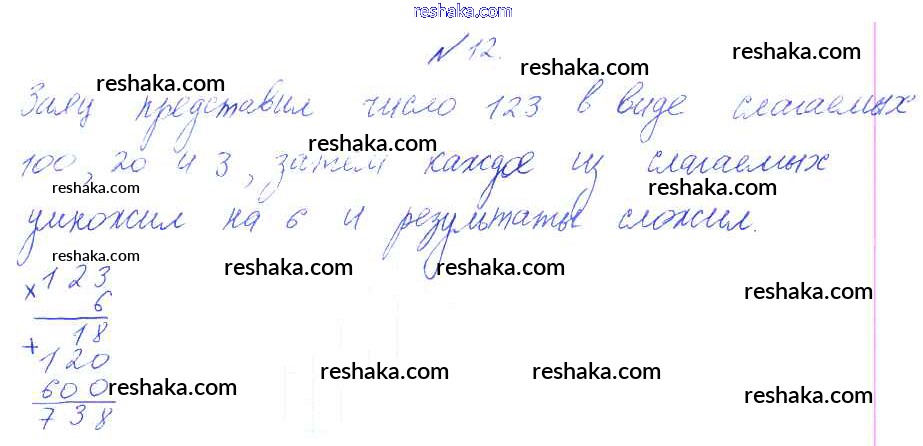 reshaka.com
N 12.
reshaka.com
reshaka.com
Заяц представил число 123 в виде слагаемых
reshaka.com
100, 20 и 3, затем каждое из слагаемых
reshaka.com
reshaka.com
умножил на 6 и результаты сложил.
reshaka.com
reshaka.com
× 123
reshaka.com
6
18
+
120
reshaka.com
reshaka.com
600
reshaka.com
reshaka.com
738